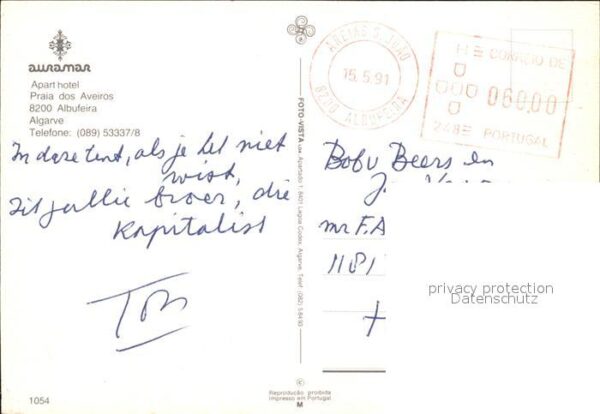 auramar
Aparthotel
Praia dos Aveiros
8200 Albufeira
Algarve
Telefone: (089) 53337/8
In deze tent, als je het niet
wist,
zit jullie broer, die
kapitalist
Tom
1054
FOTO-VISTA
Reprodução proibida
impresso em Portugal
M
AREIAS S. JOÃO
15.5.91
8200 ALBUFEIRA
CORREIO DE
060,00
248 PORTUGAL
Beers en
mr F.A
1181
privacy protection
Datenschutz